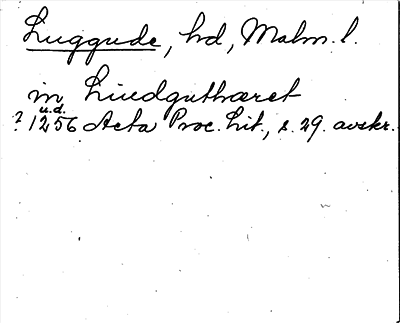 Luggude, hd, Malm. l.
in Liudguthæret
u.d.
? 1256 Acta Proc. Lit., s. 29. avskr.